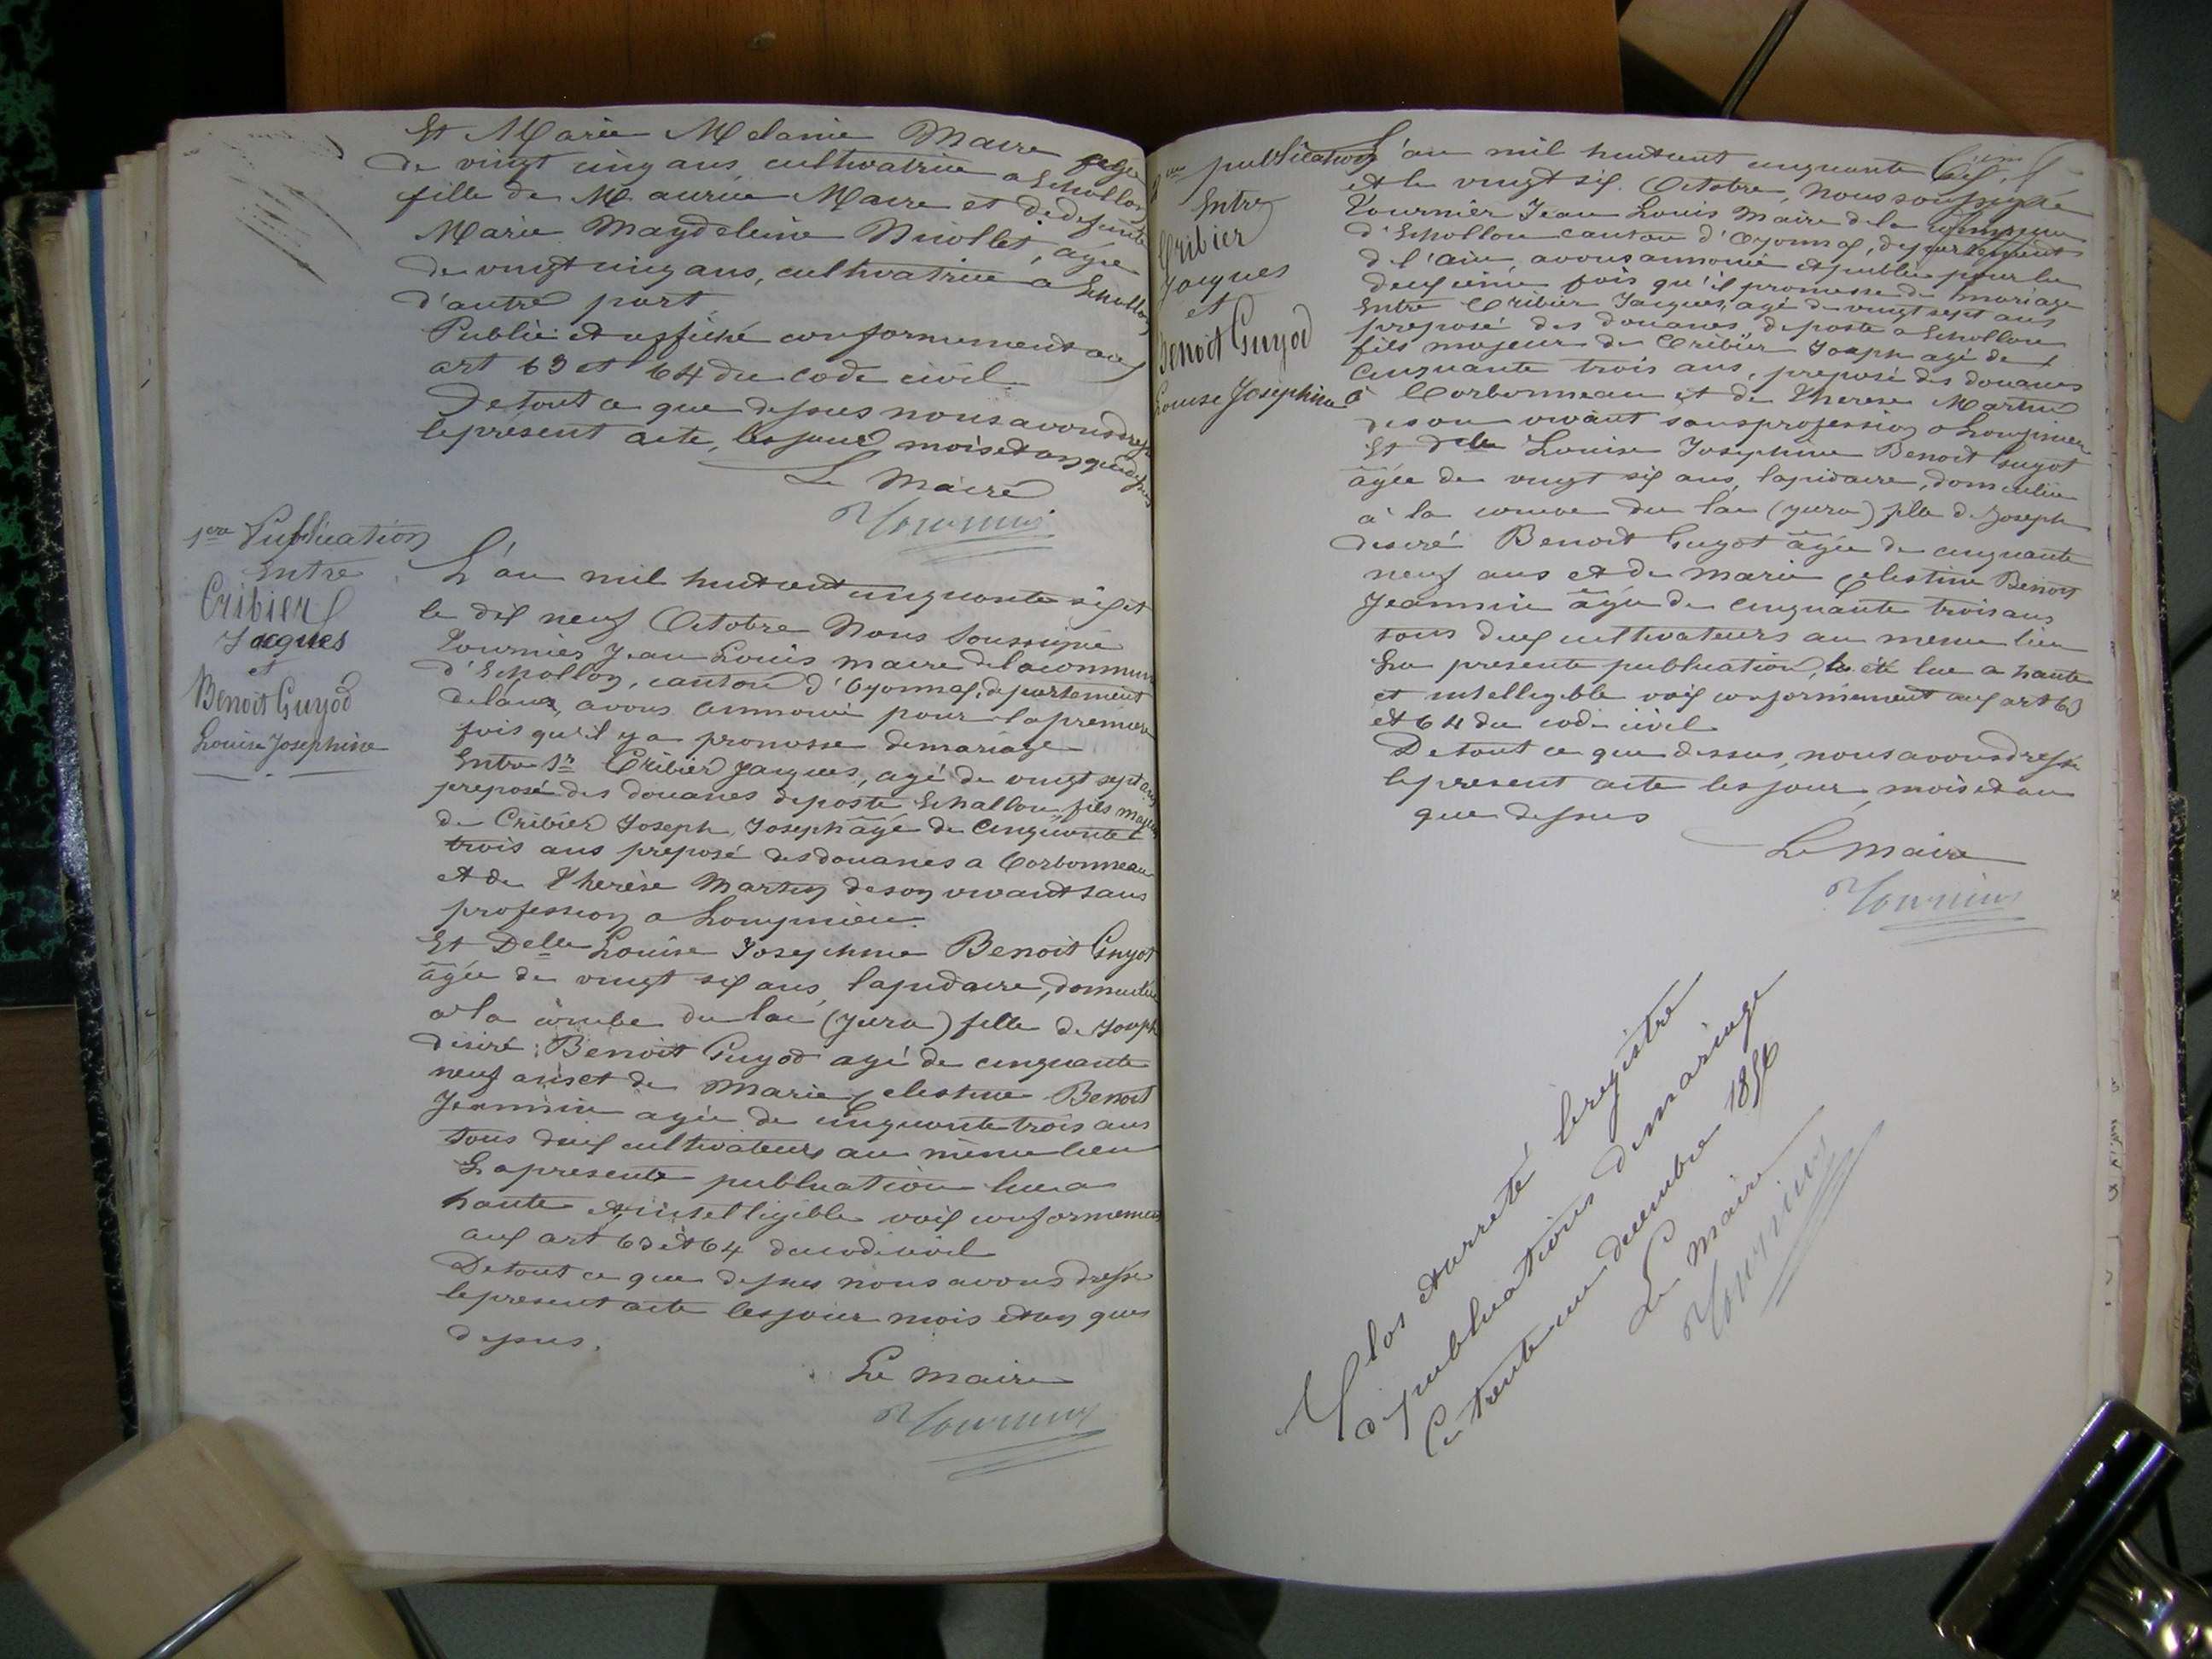 Et Marie Melanie Maire agée
de vingt cinq ans, cultivatrice a Echallon
fille de Maurice Maire et de defunte
Marie Magdeleine Niollet, agée
de vingt cinq ans, cultivatrice a Echallon
d'autre part
Publié et affiché conformement aux
art 63 et 64 du code civil
De tout ce que dessus nous avons dressé
le present acte, les jour mois et an que dessus
Le Maire
Tournier
1ere Publication
Entre
Cribier
Jacques
et
Benoit Guyod
Louise Josephine
L'an mil huit cent cinquante six et
le dix neuf Octobre Nous Soussigné
Tournier Jean Louis maire de la commune
d'Echallon, canton d'Oyonnax, departement
de l'ain, avons annoncé pour la premiere
fois qu'il y a promesse de mariage
Entre Sr Cribier Jacques, agé de vingt sept ans
preposé des douanes de poste Echallon, fils majeur
de Cribier Joseph, Joseph âgé de Cinquante
trois ans preposé des douanes a Corbonneau
et de Therèse Martin de son vivant sans
profession a Lompnieu
Et Delle Louise Josephine Benoit Guyot
âgée de vingt six ans, lapidaire, domiciliée
a la combe du lac (jura) fille de Joseph
desiré Benoit Guyod agé de cinquante
neuf ans et de Marie Celestine Benoit
Jeannin agée de cinquante trois ans
tous deux cultivateurs au même lieu
La presente publication lue a
haute et intelligible voix conformement
aux art 63 et 64 du code civil
De tout ce que dessus nous avons dressé
le present acte les jour mois et an que
dessus.
Le maire
Tournier
2eme publication
Entre
Cribier
Jacques
et
Benoit Guyod
Louise Josephine
L'an mil huit cent cinquante six
et le vingt six Octobre, Nous soussigné
Tournier Jean Louis Maire de la Commune
d'Echallon canton d'Oyonnax, departement
de l'ain, avons annoncé et publié pour la
deuxième fois qu'il promesse de mariage
Entre Cribier Jacques, agé de vingt sept ans
preposé des douanes, de poste a Echallon
fils majeur de Cribier Joseph agé de
Cinquante trois ans, preposé des douanes
à Corbonneau et de Therese Martin
de son vivant sans profession a Lompnieu
Et Delle Louise Josephine Benoit Guyot
âgée de vingt six ans, lapidaire, domiciliée
à la combe du lac (jura) fille de Joseph
desiré Benoit Guyot âgée de cinquante
neuf ans et de Marie Celestine Benoit
Jeannin âgée de cinquante trois ans
tous deux cultivateurs au meme lieu
La presente publication, a été lue a haute
et intelligible voix conformement aux art 63
et 64 du code civil
De tout ce que dessus, nous avons dressé
le present acte les jour, mois et an
que dessus
Le Maire
Tournier
Clos et arreté le registre
de publications de mariage
Ce trente un decembre 1856
Le Maire
Tournier